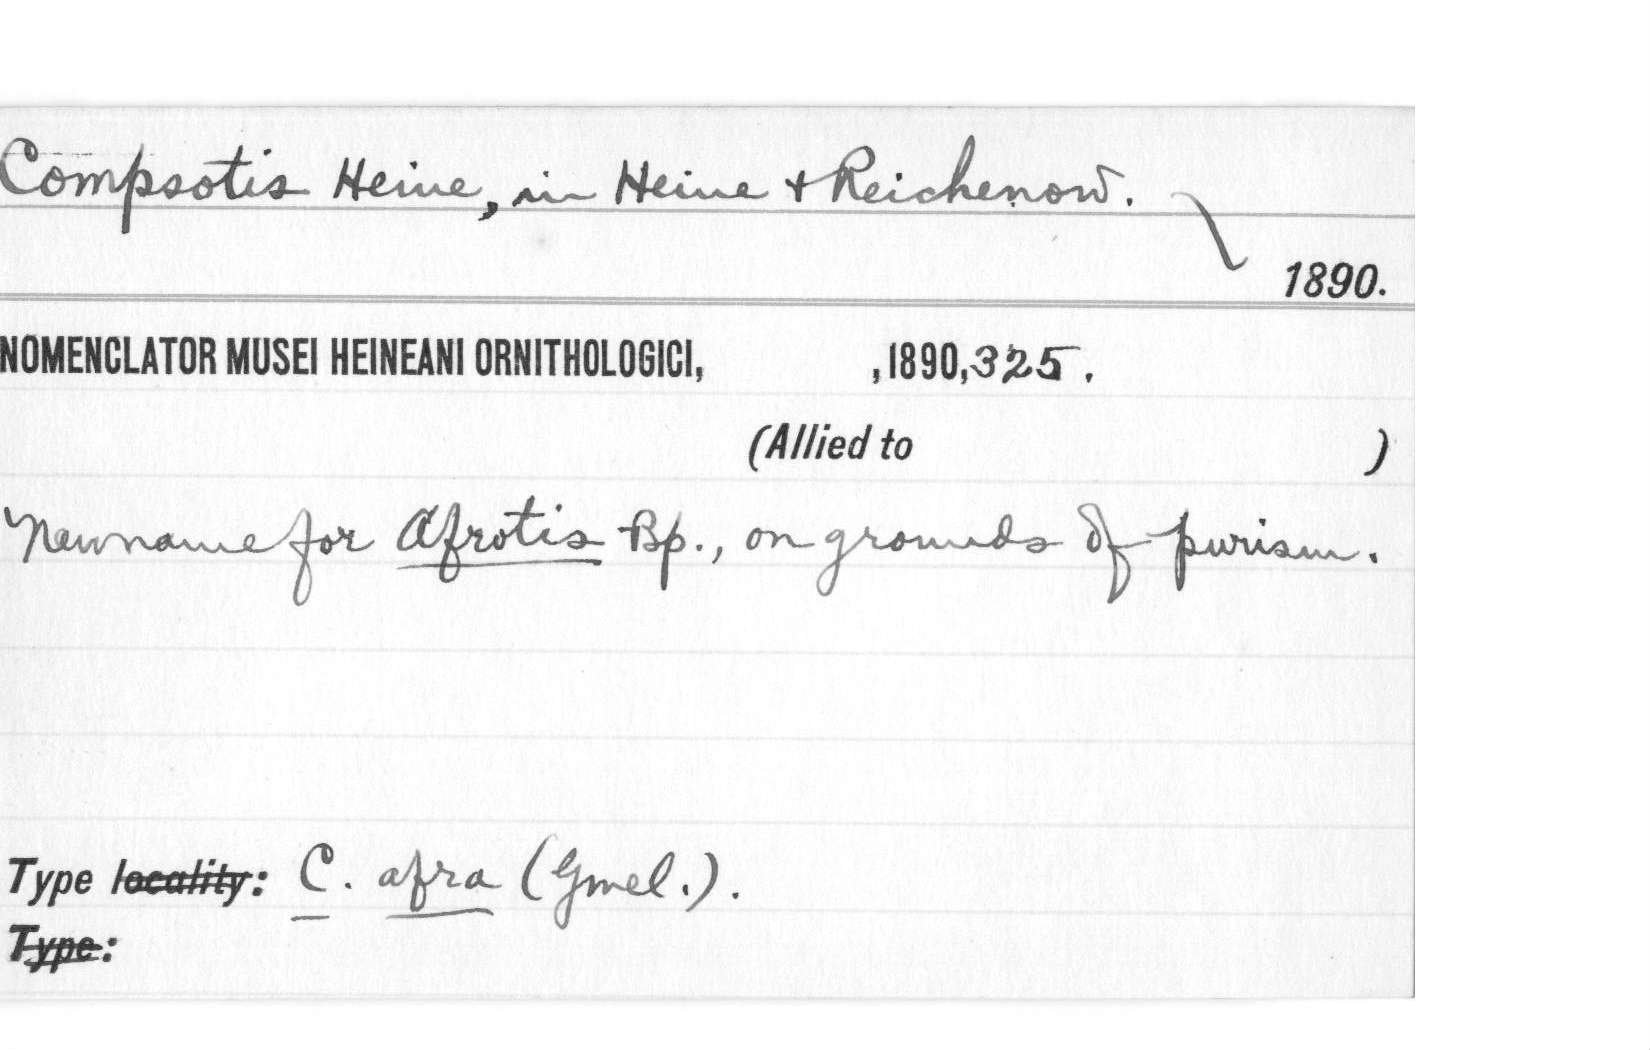 Compsotis Heine, in Heine + Reichenow.
1890.
NOMENCLATOR MUSEI HEINEANI ORNITHOLOGICI, ,1890,325.
(Allied to )
New name for Afrotis Bp., on grounds of purism.
Type locality: C. afra (Gmel.).
Type: